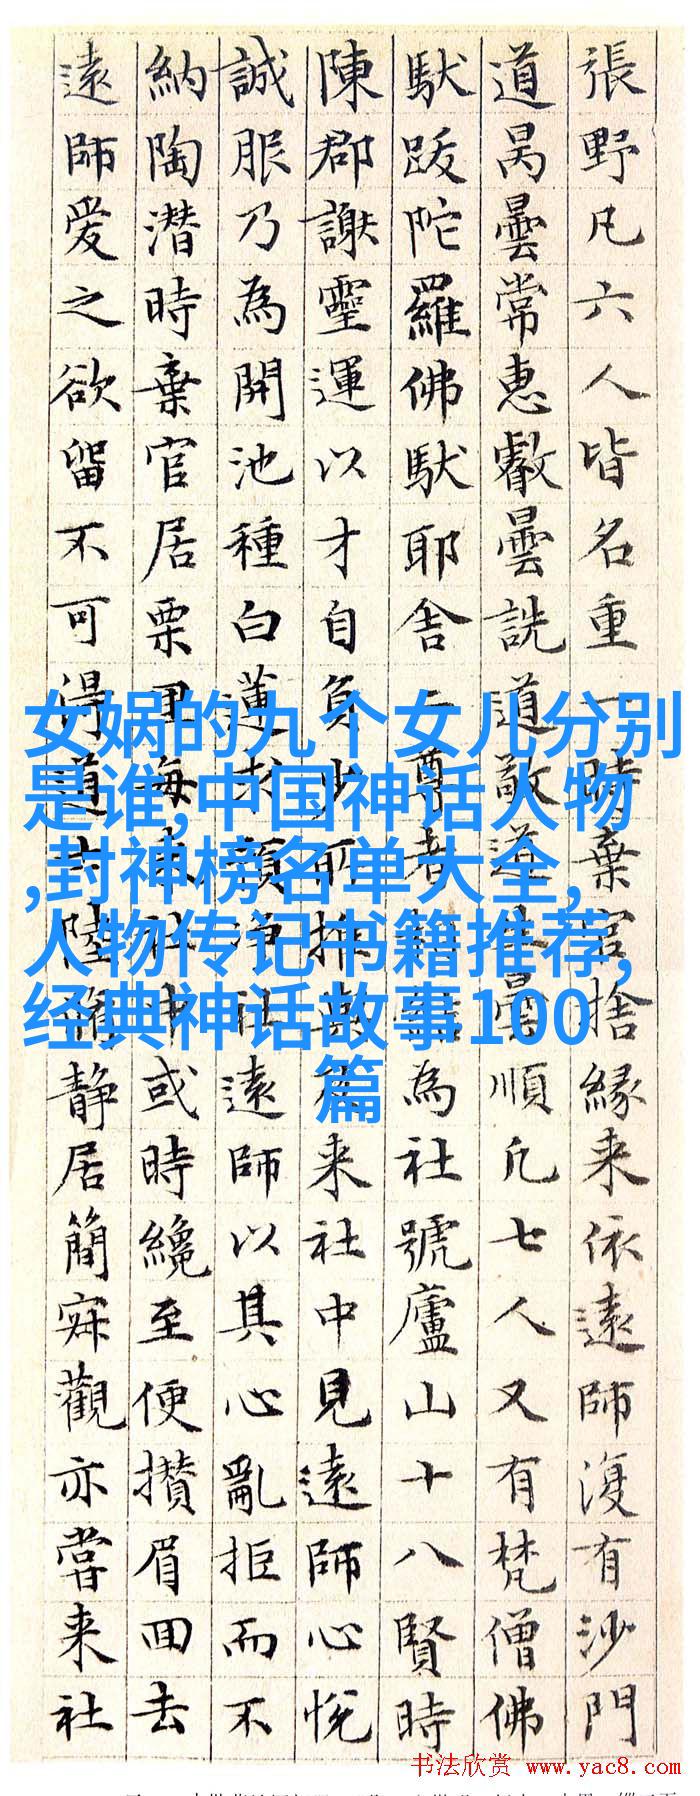 張野凡六人皆名重一時棄官捨緣来依遠師復有沙門
道昺曇常惠叡曇詵道敬道生曇順凡七人又有梵僧佛
馱跋陀羅佛馱耶舍二尊者相結為社號廬山十八賢時
陳郡謝靈運以才自負少所推来社中見遠師心悅
誠服乃為開池種白蓮求預淨社遠師以其心亂拒而不
納陶潛時棄官居栗里每来社中或時纔至便攢眉囬去
遠師愛之欲留不可得道士陸脩静居簡寂觀亦嘗来社
女娲的九个女儿分别
是谁,中国神话人物
,封神榜名单大全,
人物传记书籍推荐,
经典神话故事100
篇
书法欣赏 www.yac8.com